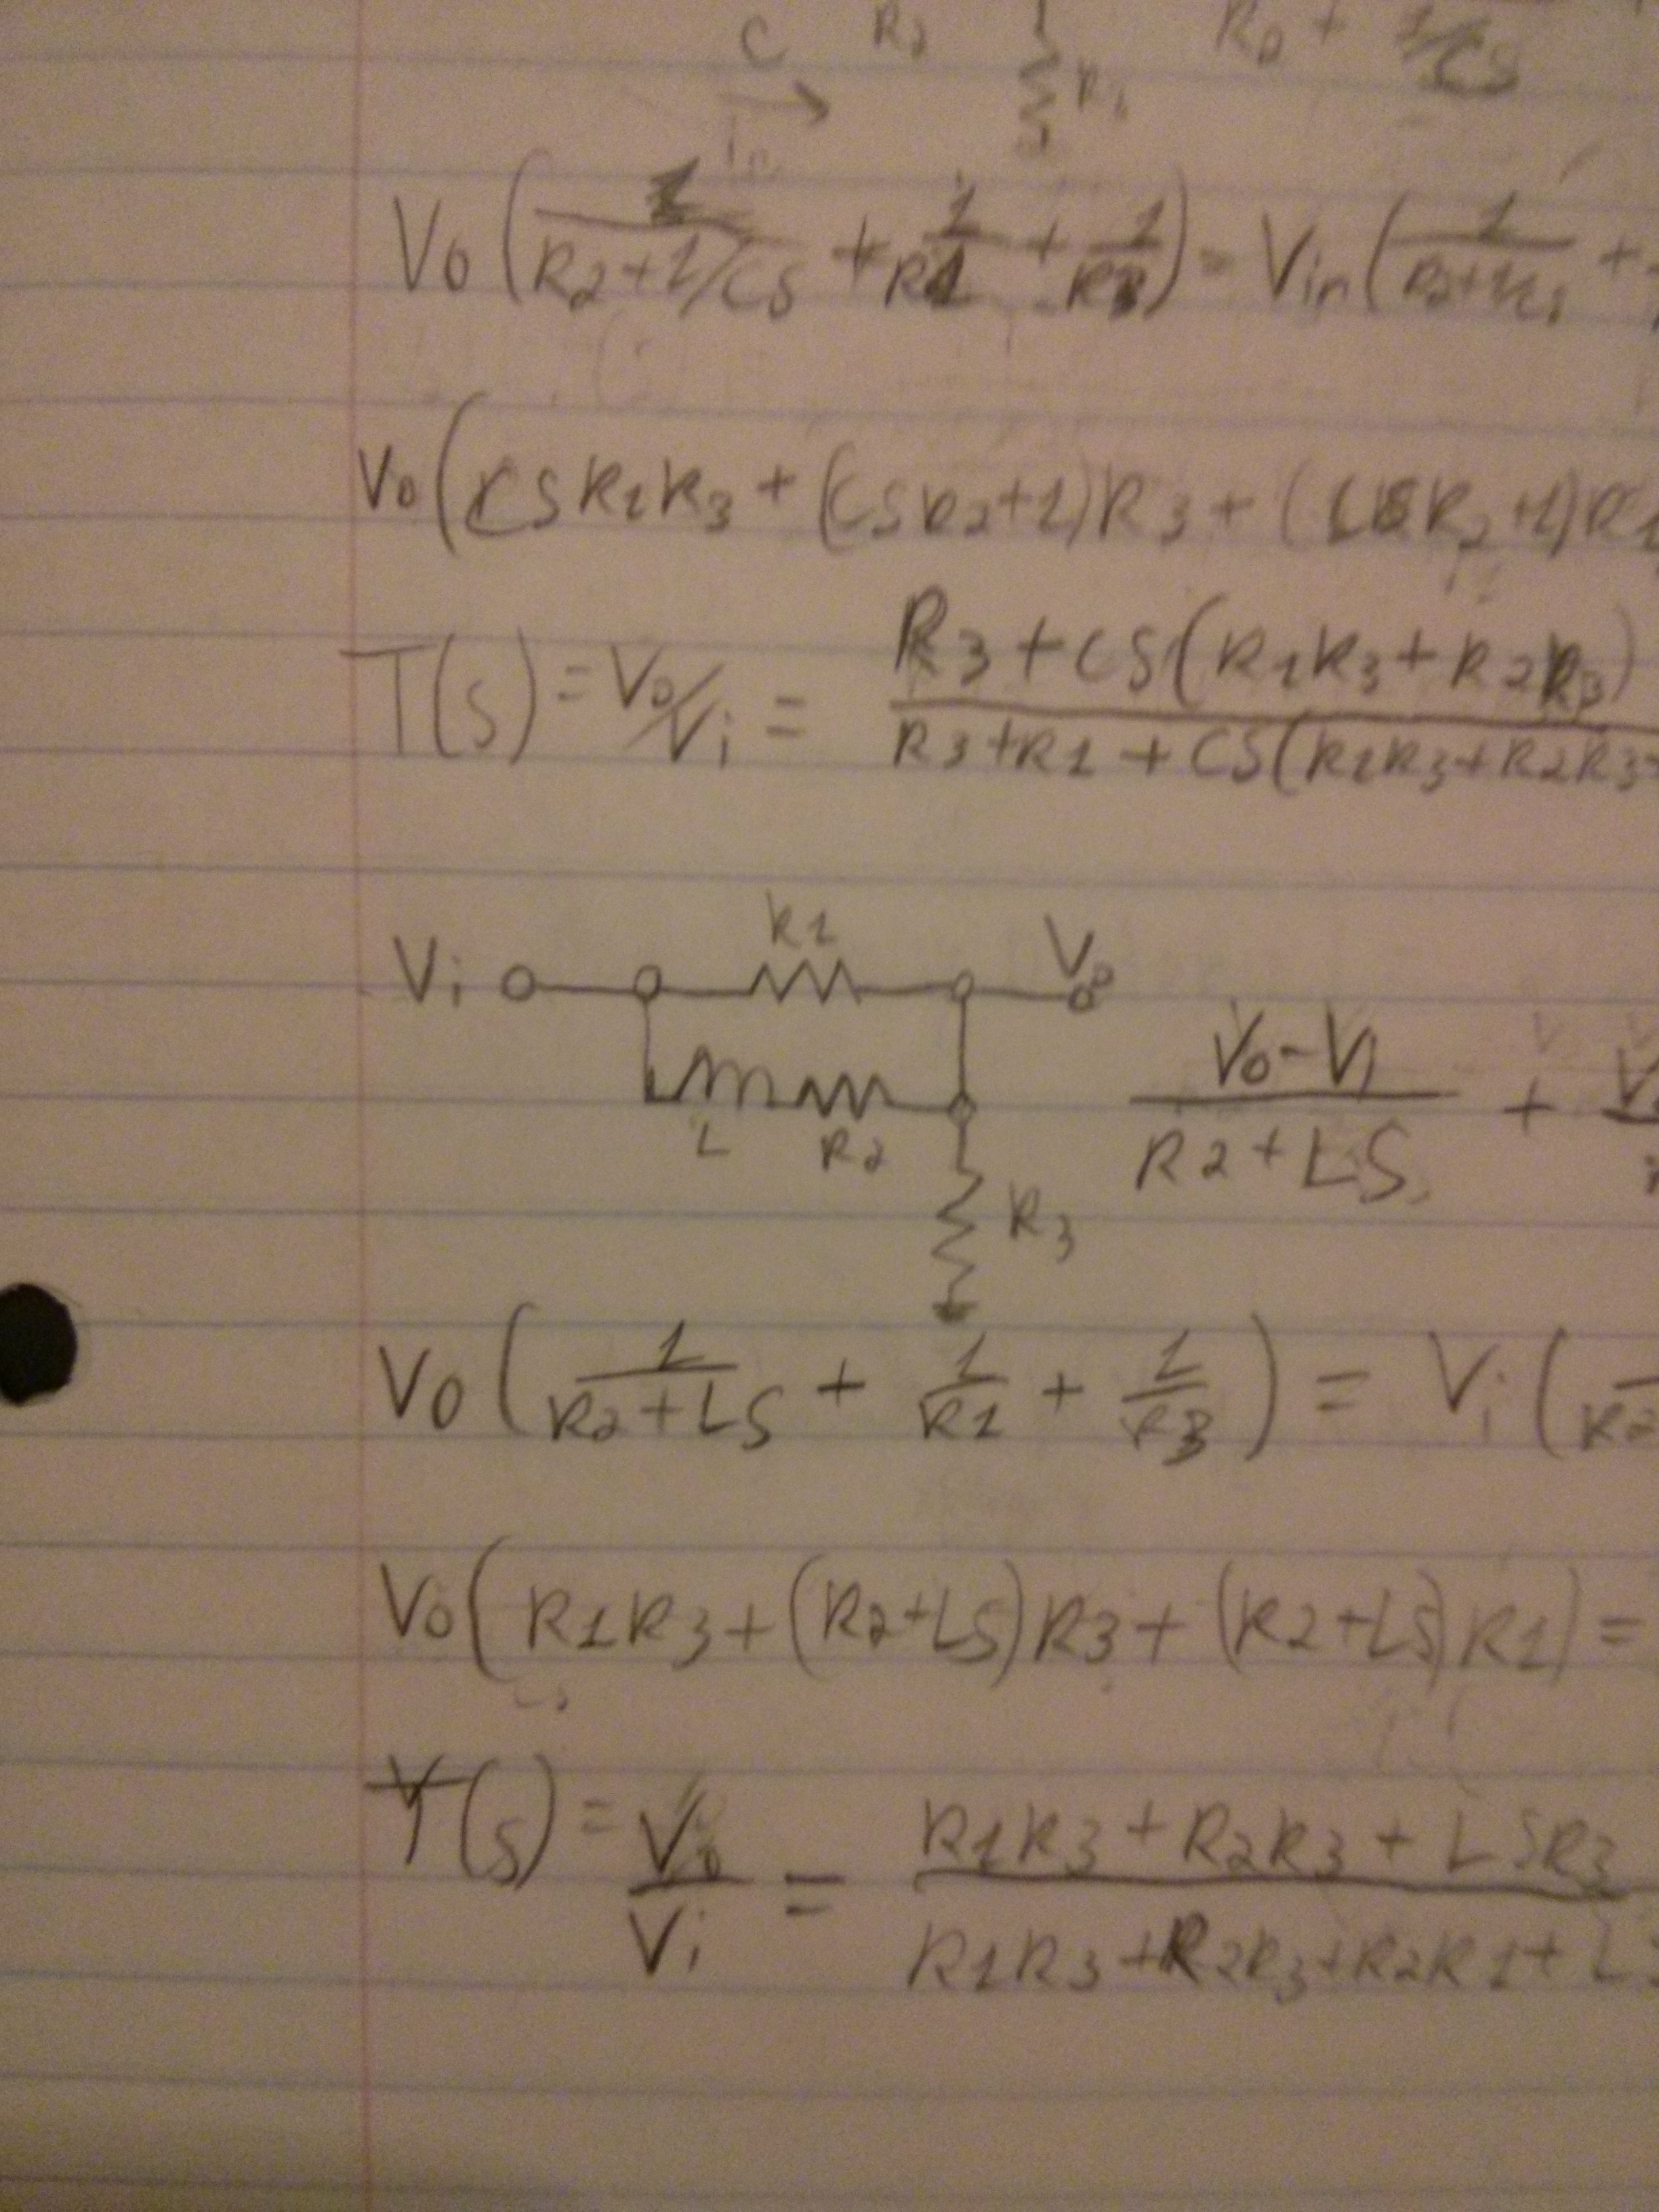 C R2 R3 R2 + 1/CS
in
Vo ( 1/(R2+1/CS) + 1/R1 + 1/R3 ) = Vin ( 1/(R2+1/Cs) +
Vo ( CSR1R3 + (CSR2+1)R3 + (CSR2+1)R1
T(S) = Vo/Vi = (R3 + CS(R1R3+R2R3)) / (R3+R1+CS(R1R3+R2R3+
Vi R1 Vo
L R2 (Vo-Vi)/(R2+LS) +
R3
Vo ( 1/(R2+LS) + 1/R1 + 1/R3 ) = Vi ( R2
Vo ( R1R3 + (R2+LS)R3 + (R2+LS)R1 ) =
T(S) = Vo/Vi = (R1R3+R2R3+LSR3) / (R1R3+R2R3+R2R1+LS